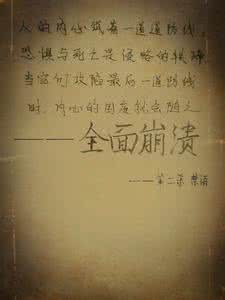 人的内心筑着一道道防线,
恐惧与死亡是侵略的铁蹄
当它们攻陷最后一道防线
时,内心的国度就会随之
———全面崩溃
——第二季 禁语